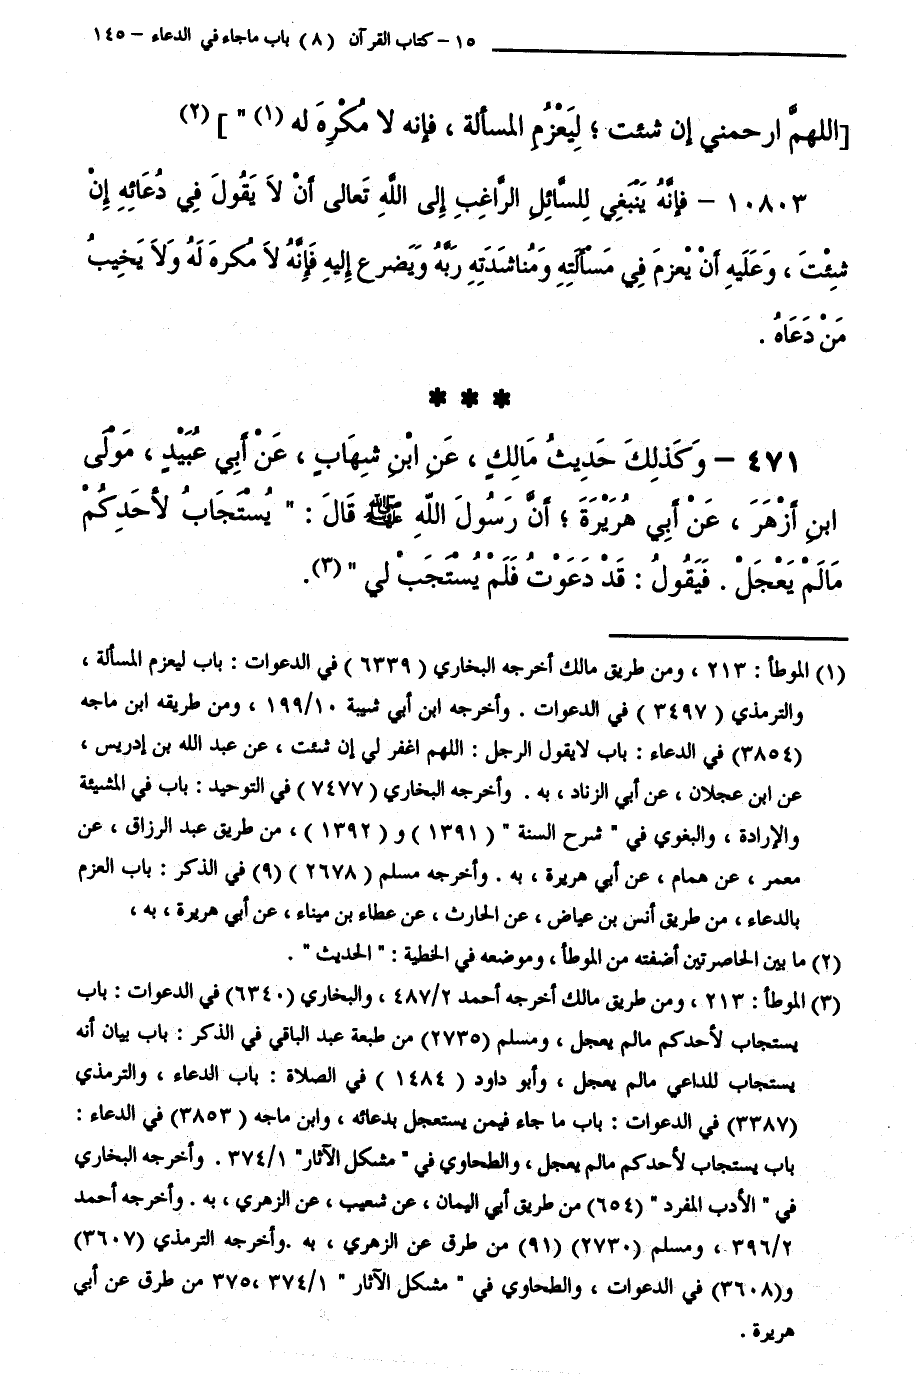 ١٥ - كتاب القرآن (٨) باب ماجاء في الدعاء - ١٤٥
[اللهمَّ ارحمني إن شئت ؛ لِيَعْزُمِ المسألة ، فإنه لا مُكْرِهَ له (١) " ] (٢)
١٠٨٠٣ - فإنَّهُ يَنْبَغِي لِلسَّائِلِ الرَّاغِبِ إِلى اللَّهِ تَعالى أنْ لاَ يَقُولَ فِي دُعَائِهِ إِنْ
شِئْتَ ، وَعَلَيهِ أَنْ يْعزمَ فِي مَسْألَتِهِ وَمُناشَدَتِهِ رَبَّهُ وَيَضرع إليهِ فَإنَّهُ لاَ مُكرهَ لَهُ وَلاَ يَخِيبُ
مَنْ دَعَاهُ .
***
٤٧١ - وَكَذلِكَ حَدِيثُ مَالِكٍ ، عَنِ ابْنِ شِهَابٍ ، عَنْ أَبِي عُبَيْدٍ ، مَوْلَى
ابنِ أَزْهَرَ ، عَنْ أَبِي هُرَيْرَةَ ؛ أنَّ رَسُولَ اللّهِ ﷺ قَالَ : " يُسْتَجَابُ لأَحَدِكُمْ
مَالَمْ يَعْجَلْ . فَيَقُولُ : قَدْ دَعَوْتُ فَلَمْ يُسْتَجَبْ لي " (٣).
(١) الموطأ : ٢١٣ ، ومن طريق مالك أخرجه البخاري ( ٦٣٣٩ ) في الدعوات : باب ليعزم المسألة ،
والترمذي ( ٣٤٩٧ ) في الدعوات . وأخرجه ابن أبي شيبة ١٩٩/١٠ ، ومن طريقه ابن ماجه
(٣٨٥٤) في الدعاء : باب لايقول الرجل : اللهم اغفر لي إن شئت ، عن عبد الله بن إدريس ،
عن ابن عجلان ، عن أبي الزناد ، به . وأخرجه البخاري ( ٧٤٧٧ ) في التوحيد : باب في المشيئة
والإرادة ، والبغوي في " شرح السنة " ( ١٣٩١ ) و ( ١٣٩٢ ) ، من طريق عبد الرزاق ، عن
معمر ، عن همام ، عن أبي هريرة ، به . وأخرجه مسلم ( ٢٦٧٨ ) (٩) في الذكر : باب العزم
بالدعاء ، من طريق أنس بن عياض ، عن الحارث ، عن عطاء بن ميناء ، عن أبي هريرة ، به ،
(٢) ما بين الحاصرتين أضفته من الموطأ ، وموضعه في الخطية : " الحديث " .
(٣) الموطأ : ٢١٣ ، ومن طريق مالك أخرجه أحمد ٤٨٧/٢ ، والبخاري (٦٣٤٠) في الدعوات : باب
يستجاب لأحدكم مالم يعجل ، ومسلم (٢٧٣٥) من طبعة عبد الباقي في الذكر : باب بيان أنه
يستجاب للداعي مالم يعجل ، وأبو داود ( ١٤٨٤ ) في الصلاة : باب الدعاء ، والترمذي
(٣٣٨٧) في الدعوات : باب ما جاء فيمن يستعجل بدعائه ، وابن ماجه ( ٣٨٥٣) في الدعاء :
باب يستجاب لأحدكم مالم يعجل ، والطحاوي في " مشكل الآثار" ٣٧٤/١ . وأخرجه البخاري
في " الأدب المفرد " (٦٥٤) من طريق أبي اليمان ، عن شعيب ، عن الزهري ، به . وأخرجه أحمد
٣٩٦/٢ ، ومسلم (٢٧٣٠) (٩١) من طرق عن الزهري ، به .وأخرجه الترمذي (٣٦٠٧)
و(٣٦٠٨) في الدعوات ، والطحاوي في " مشكل الآثار " ٣٧٤/١ ،٣٧٥ من طرق عن أبي
هريرة .